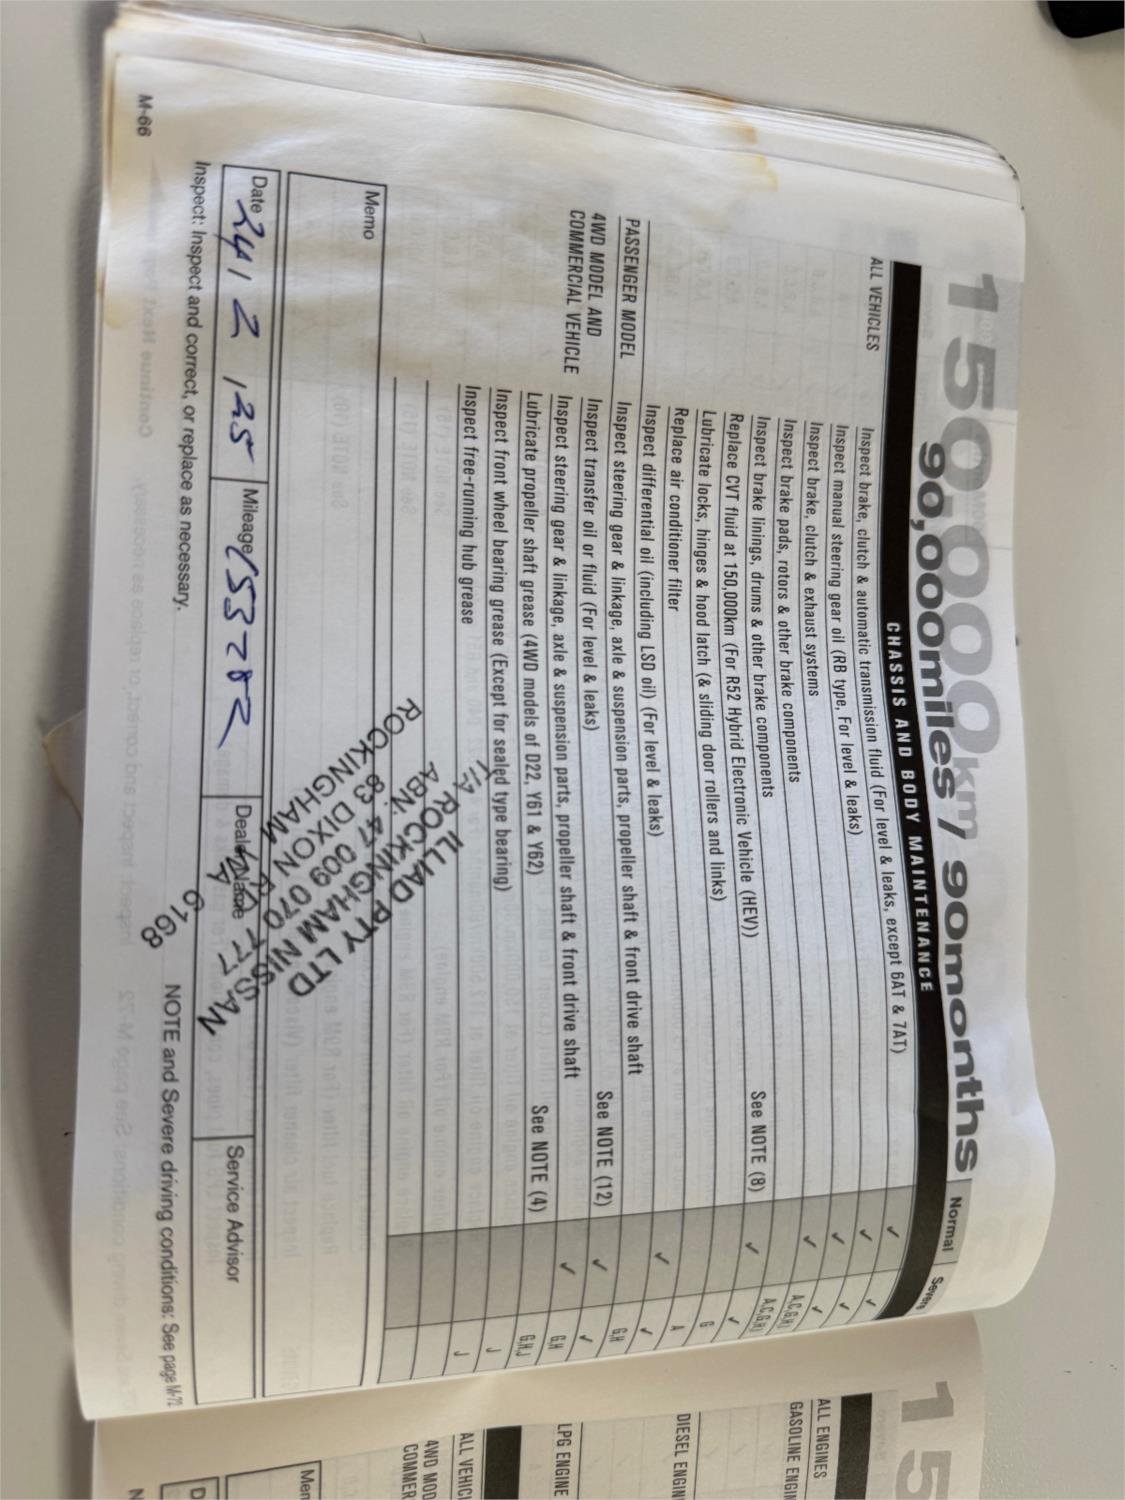 150,000km/
90,000miles/ 90months
Normal
Severe
CHASSIS AND BODY MAINTENANCE
ALL VEHICLES
Inspect brake, clutch & automatic transmission fluid (For level & leaks, except 6AT & 7AT) ✓ ✓
Inspect manual steering gear oil (RB type, For level & leaks) ✓ ✓
Inspect brake, clutch & exhaust systems ✓ ✓
Inspect brake pads, rotors & other brake components ✓ A,C,G,H,I
Inspect brake linings, drums & other brake components A,C,G,H,I
Replace CVT fluid at 150,000km (For R52 Hybrid Electronic Vehicle (HEV)) See NOTE (8) ✓ ✓
Lubricate locks, hinges & hood latch (& sliding door rollers and links) G
Replace air conditioner filter A
Inspect differential oil (including LSD oil) (For level & leaks) ✓ ✓
PASSENGER MODEL
Inspect steering gear & linkage, axle & suspension parts, propeller shaft & front drive shaft G,H
4WD MODEL AND
COMMERCIAL VEHICLE
Inspect transfer oil or fluid (For level & leaks) See NOTE (12) ✓ ✓
Inspect steering gear & linkage, axle & suspension parts, propeller shaft & front drive shaft ✓ G,H
Lubricate propeller shaft grease (4WD models of D22, Y61 & Y62) See NOTE (4) G,H,J
Inspect front wheel bearing grease (Except for sealed type bearing) J
Inspect free-running hub grease J
Memo
ILLIAD PTY LTD
T/A ROCKINGHAM NISSAN
ABN: 47 009 070 777
83 DIXON RD
ROCKINGHAM WA 6168
Date 24/ 2 /25
Mileage 153282
Dealer Name
Service Advisor
Inspect: Inspect and correct, or replace as necessary.
NOTE and Severe driving conditions: See page M-72
M-66
15
ALL ENGINES
GASOLINE ENGIN
DIESEL ENGIN
LPG ENGINE
ALL VEHICL
4WD MOD
COMMER
Mem
D
N